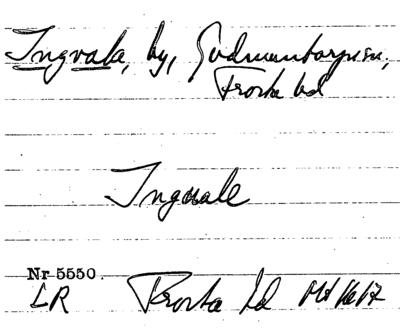 Ingvala, by, Gudmuntorps sn,
Frosta hd
Inguale
Nr 5550.
LR Frosta hd